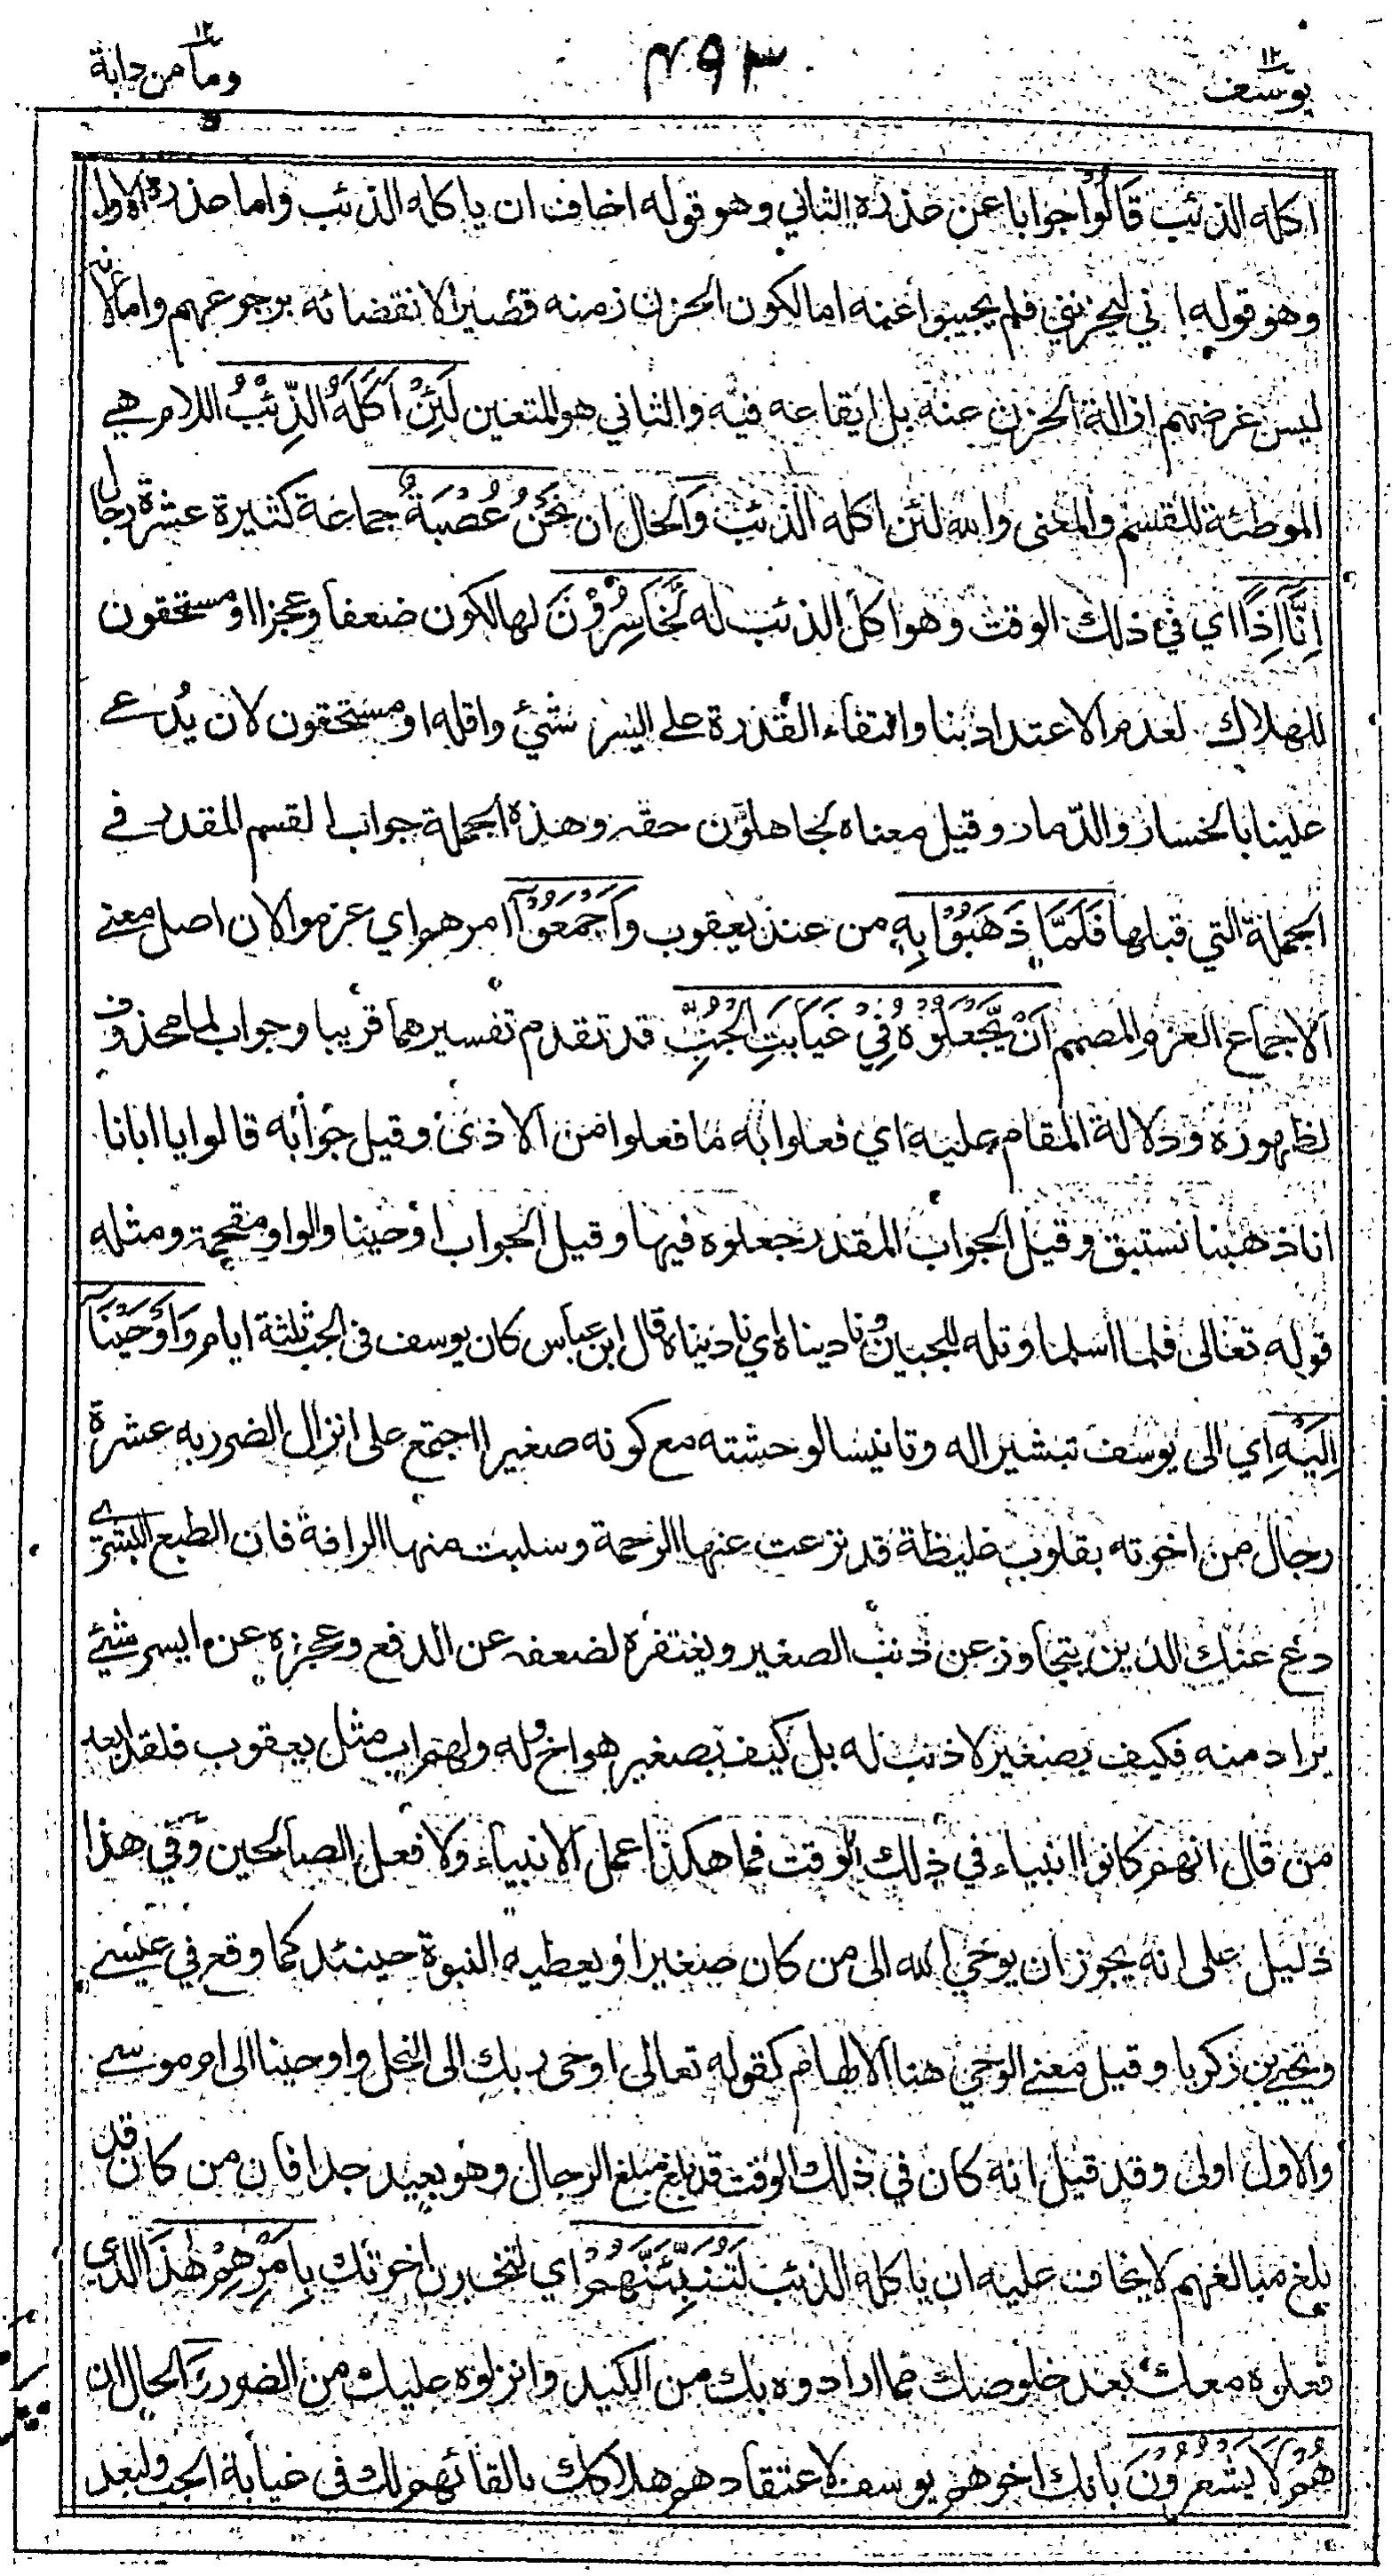 يوسف ١٢
٤٩٣
وما من دابة ١٢
اكله الذئب قَالُوْا جوابا عن عذره الثاني وهو قوله اخاف ان ياكله الذئب واما عذره الاول
وهو قوله اني ليحزنني فلم يجيبوا عنه اما لكون الحزن زمنه قصير الانقضائه برجوعهم واما لانه
ليس غرضهم ازالة الحزن عنه بل ايقاعه فيه والثاني هو المتعين لَئِنْ اَكَلَهُ الذِّئْبُ اللام هي
الموطئة للقسم والمعنى والله لئن اكله الذئب وَالحال ان نَحْنُ عُصْبَةٌ جماعة كثيرة عشرة رجال
اِنَّآ اِذًا اي في ذلك الوقت وهو اكل الذئب له لَّخَاسِرُوْنَ لهالكون ضعفا وعجزا او مستحقون
للهلاك لعدم الاعتداد بنا وانتفاء القدرة على اليسر شئ واقله او مستحقون لان يُدعے
علينا بالخسار والدّمار وقيل معناه لجاهلون حقه وهذه الجملة جواب القسم المقدر في
الجملة التي قبلها فَلَمَّا ذَهَبُوْا بِهٖ من عند يعقوب وَاَجْمَعُوْٓا امرهم اي عزموا لان اصل معنے
الاجماع العزم المصمم اَنْ يَّجْعَلُوْهُ فِيْ غَيَابَتِ الْجُبِّ قد تقدم تفسيرهما قريبا وجواب لما محذوف
لظهوره ودلالة المقام عليه اي فعلوا به ما فعلوا من الاذى وقيل جوابه قالوا يا ابانا
انا ذهبنا نستبق وقيل الجواب المقدر جعلوه فيها وقيل الجواب اوحينا والواو مقحمة ومثله
قوله تعالى فلما اسلما وتله للجبين وناديناه اي ناديناه قال ابن عباس كان يوسف فى الجب ثلثة ايام وَاَوْحَيْنَآ
اِلَيْهِ اي الى يوسف تبشيرا له وتانيسا لوحشته مع كونه صغيرا اجتمع على انزال الضرر به عشرة
رجال من اخوته بقلوب غليظة قد نزعت عنها الرحمة وسلبت منها الرافة فان الطبع البشري
دع عنك الدين يتجاوز عن ذنب الصغير ويغتفره لضعفه عن الدفع وعجزه عن ايسر شئے
يراد منه فكيف بصغير لا ذنب له بل كيف بصغير هو اخ وله ولهم اب مثل يعقوب فلقد ابعد
من قال انهم كانوا انبياء في ذلك الوقت فما هكذا عمل الانبياء ولا فعل الصالحين وفي هذا
دليل على انه يجوز ان يوحي الله الى من كان صغيرا ويعطيه النبوة حينئذ كما وقع في عيسے
ويحيے بن زكريا وقيل معنے الوحي هنا الالهام كقوله تعالى اوحى ربك الى النحل واوحينا الى ام موسے
والاول اولى وقد قيل انه كان في ذلك الوقت قد بلغ مبلغ الرجال وهو بعيد جدا فان من كان قد
بلغ مبالغهم لا يخاف عليه ان ياكله الذئب لَتُنَبِّئَنَّهُمْ اي لتخبرن اخوتك بِاَمْرِهِمْ هٰذَا الذي
فعلوه معك بعد خلوصك مما ارادوه بك من الكيد وانزلوه عليك من الضرر وَالحال ان
هُمْ لَا يَشْعُرُوْنَ بانك اخوهم يوسف لاعتقادهم هلاكك بالقائهم لك فى غيابة الجب ولبعد